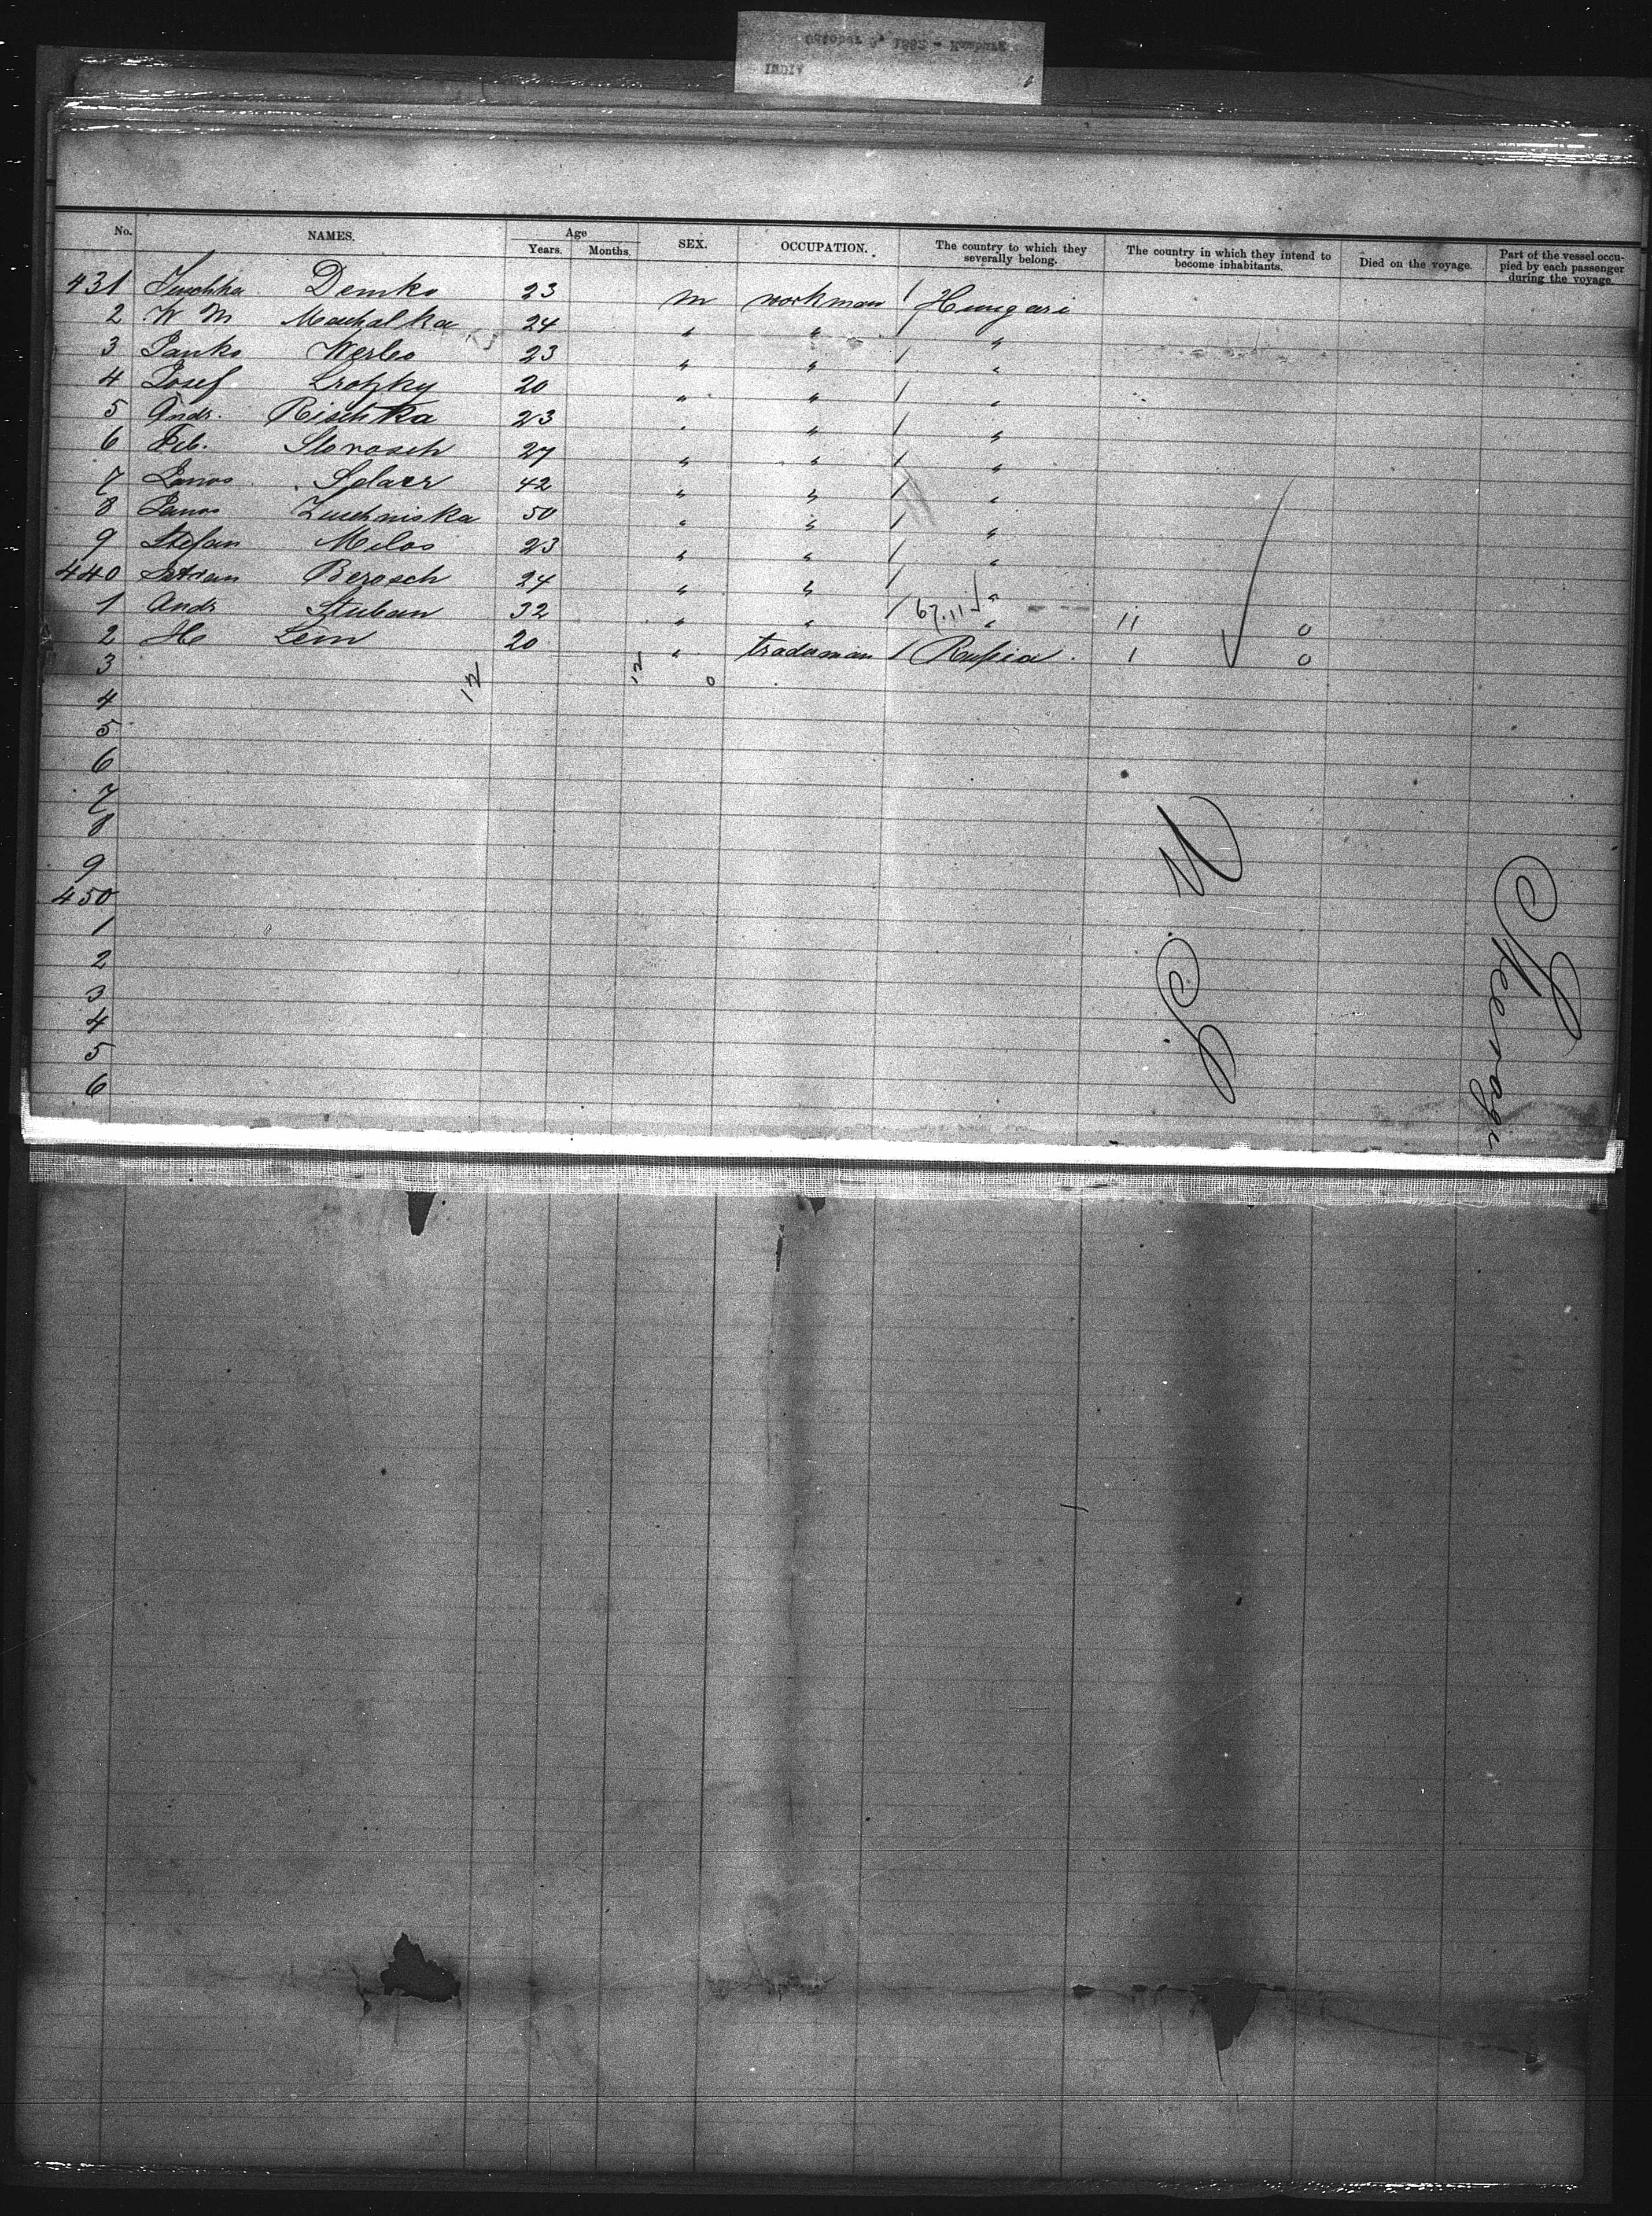 INDIA
October 5, 1882 - Hamburg
No. NAMES. Age Years. Months. SEX. OCCUPATION. The country to which they severally belong. The country in which they intend to become inhabitants. Died on the voyage. Part of the vessel occupied by each passenger during the voyage.
431 Juschka Demko 23 m workman / Hungari
2 W M Machalka 24 " " / "
3 Janko Werleo 23 " " / "
4 Josef 20 " " / "
5 Andr. Rischka 23 " " / "
6 Feb. Slorosch 27 " " / "
7 Janos 42 " " / "
8 Janos Zuschniska 50 " " / "
9 Stefan Milos 23 " " / "
440 Berosch 24 " " / "
1 Andr Stuban 32 " " / 67.11 " 11 0
2 He Lem 20 " tradesman / Rußia. 1 0
3 12 12 0
4
5
6
7
8
9
450
1
2
3
4
5
6
U. S.
Steerage